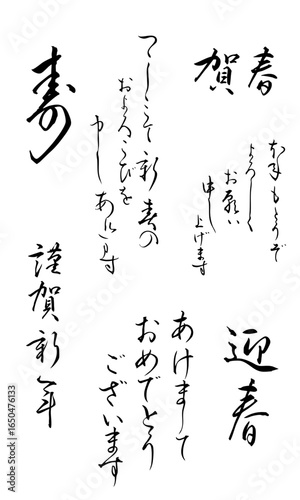 賀春
本年もどうぞ
よろしく
お願い
申し
上げます
つつしみて新春の
およろこびを
申しあげます
寿
迎春
あけまして
おめでとう
ございます
謹賀新年
Adobe Stock | #1650476133